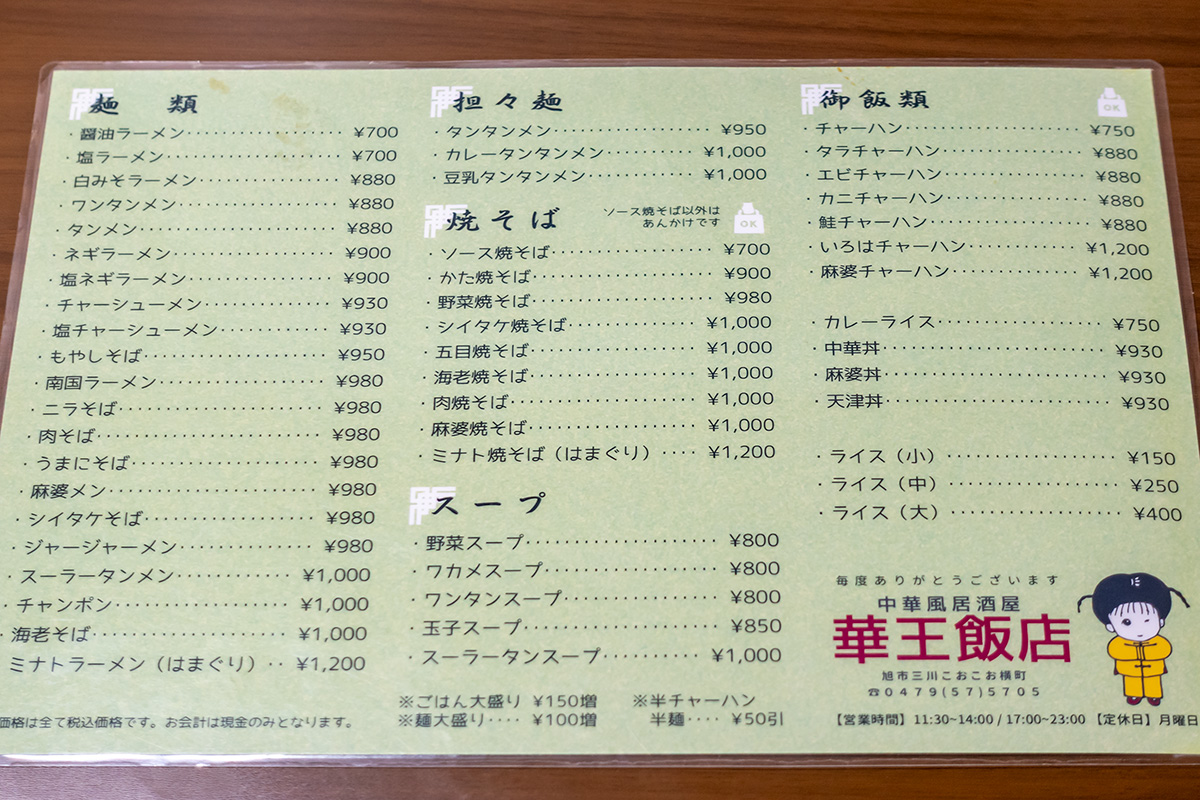 麺類
・醤油ラーメン‥‥‥‥‥‥‥‥‥ ¥700
・塩ラーメン‥‥‥‥‥‥‥‥‥ ¥700
・白みそラーメン‥‥‥‥‥‥‥ ¥880
・ワンタンメン‥‥‥‥‥‥‥‥ ¥880
・タンメン‥‥‥‥‥‥‥‥‥‥ ¥880
・ネギラーメン‥‥‥‥‥‥‥‥ ¥900
・塩ネギラーメン‥‥‥‥‥‥‥ ¥900
・チャーシューメン‥‥‥‥‥‥ ¥930
・塩チャーシューメン‥‥‥‥‥ ¥930
・もやしそば‥‥‥‥‥‥‥‥‥ ¥950
・南国ラーメン‥‥‥‥‥‥‥‥ ¥980
・ニラそば‥‥‥‥‥‥‥‥‥‥ ¥980
・肉そば‥‥‥‥‥‥‥‥‥‥‥ ¥980
・うまにそば‥‥‥‥‥‥‥‥‥ ¥980
・麻婆メン‥‥‥‥‥‥‥‥‥‥ ¥980
・シイタケそば‥‥‥‥‥‥‥‥ ¥980
・ジャージャーメン‥‥‥‥‥‥ ¥980
・スーラータンメン‥‥‥‥‥ ¥1,000
・チャンポン‥‥‥‥‥‥‥‥ ¥1,000
・海老そば‥‥‥‥‥‥‥‥‥ ¥1,000
ミナトラーメン（はまぐり）‥ ¥1,200
価格は全て税込価格です。お会計は現金のみとなります。
担々麺
・タンタンメン‥‥‥‥‥‥‥‥ ¥950
・カレータンタンメン‥‥‥‥ ¥1,000
・豆乳タンタンメン‥‥‥‥‥ ¥1,000
焼そば
ソース焼そば以外は
あんかけです
OK
・ソース焼そば‥‥‥‥‥‥‥‥ ¥700
・かた焼そば‥‥‥‥‥‥‥‥‥ ¥900
・野菜焼そば‥‥‥‥‥‥‥‥‥ ¥980
・シイタケ焼そば‥‥‥‥‥‥ ¥1,000
・五目焼そば‥‥‥‥‥‥‥‥ ¥1,000
・海老焼そば‥‥‥‥‥‥‥‥ ¥1,000
・肉焼そば‥‥‥‥‥‥‥‥‥ ¥1,000
・麻婆焼そば‥‥‥‥‥‥‥‥ ¥1,000
・ミナト焼そば（はまぐり）‥‥ ¥1,200
スープ
・野菜スープ‥‥‥‥‥‥‥‥‥ ¥800
・ワカメスープ‥‥‥‥‥‥‥‥ ¥800
・ワンタンスープ‥‥‥‥‥‥‥ ¥800
・玉子スープ‥‥‥‥‥‥‥‥‥ ¥850
・スーラータンスープ‥‥‥‥ ¥1,000
※ごはん大盛り ¥150増
※麺大盛り‥‥ ¥100増
※半チャーハン
半麺‥‥ ¥50引
御飯類
OK
・チャーハン‥‥‥‥‥‥‥‥‥ ¥750
・タラチャーハン‥‥‥‥‥‥‥ ¥880
・エビチャーハン‥‥‥‥‥‥‥ ¥880
・カニチャーハン‥‥‥‥‥‥‥ ¥880
・鮭チャーハン‥‥‥‥‥‥‥‥ ¥880
・いろはチャーハン‥‥‥‥‥ ¥1,200
・麻婆チャーハン‥‥‥‥‥‥ ¥1,200
・カレーライス‥‥‥‥‥‥‥‥ ¥750
・中華丼‥‥‥‥‥‥‥‥‥‥‥ ¥930
・麻婆丼‥‥‥‥‥‥‥‥‥‥‥ ¥930
・天津丼‥‥‥‥‥‥‥‥‥‥‥ ¥930
・ライス（小）‥‥‥‥‥‥‥‥ ¥150
・ライス（中）‥‥‥‥‥‥‥‥ ¥250
・ライス（大）‥‥‥‥‥‥‥‥ ¥400
毎度ありがとうございます
中華風居酒屋
華王飯店
旭市三川こおこお横町
☎0479(57)5705
【営業時間】11:30~14:00 / 17:00~23:00 【定休日】月曜日